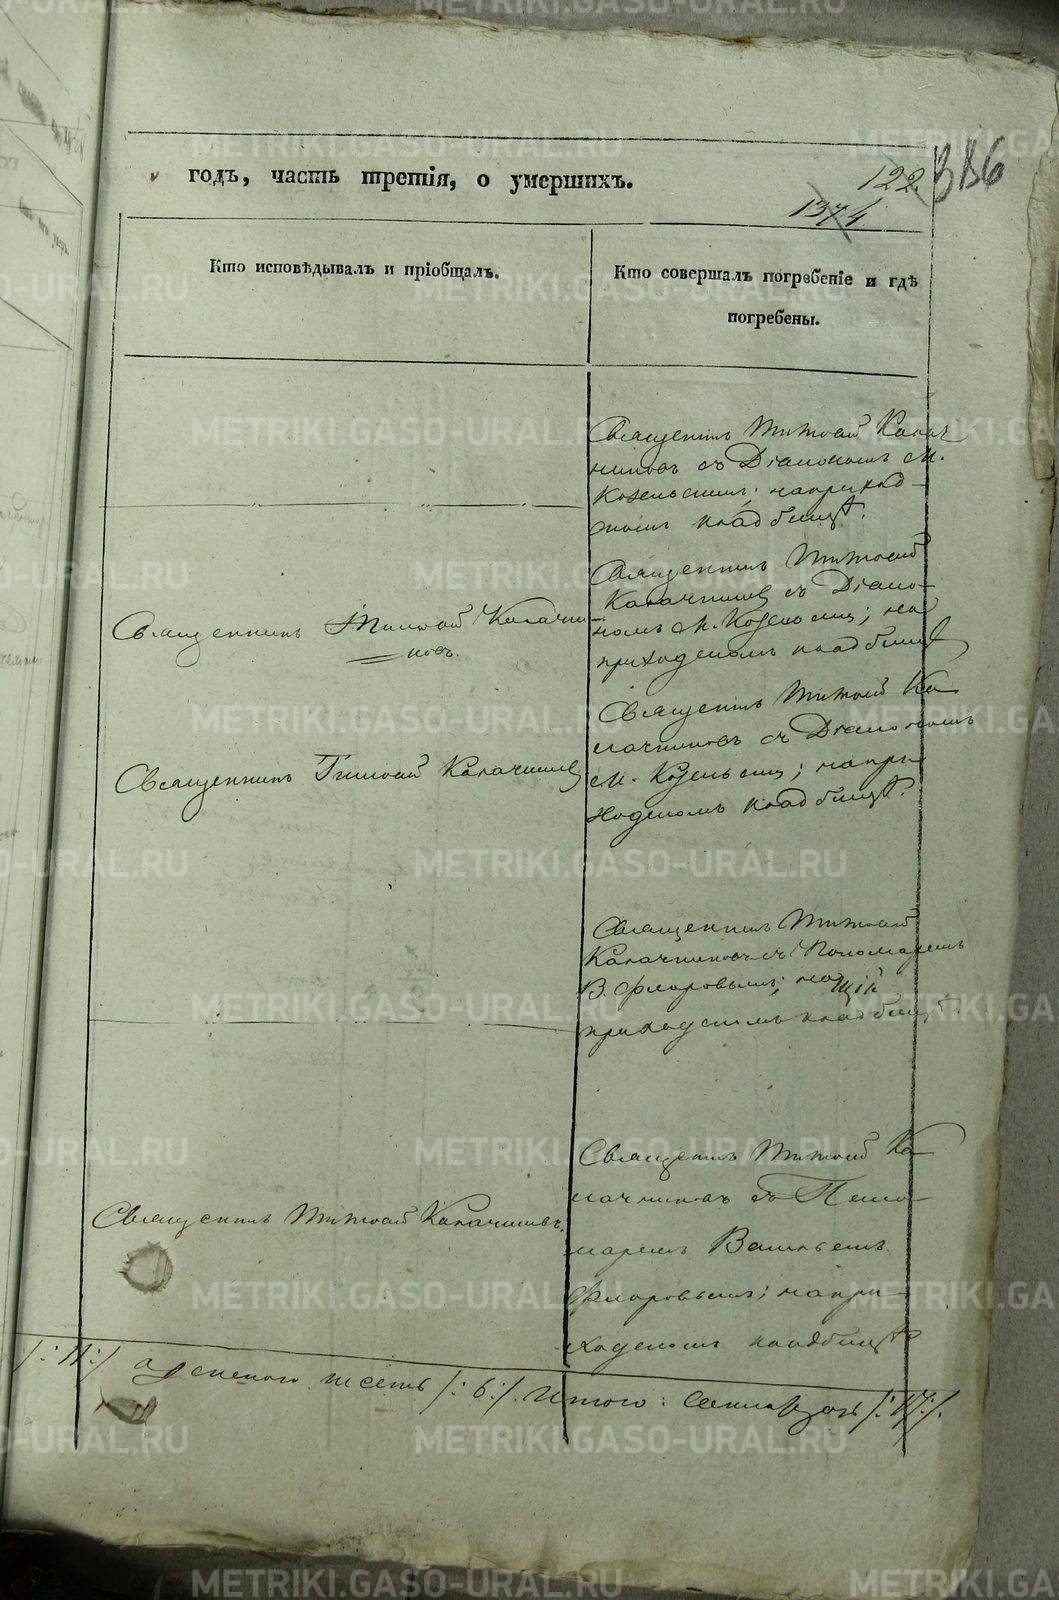 годъ, часть третія, о умершихъ.
122.
1374
Кто исповѣдывалъ и пріобщалъ.
Кто совершалъ погребеніе и гдѣ
погребены.
Священникъ Тимоѳей Калач
никовъ съ Діакономъ М.
Козельскимъ; на приход-
скомъ кладбищѣ.
Священникъ Тимоѳей Калачни-
ковъ.
Священникъ Тимоѳей
Калачниковъ съ Діако-
номъ М. Козельскимъ; на
приходскомъ кладбищѣ
Священникъ Тимоѳей Калачниковъ
Священникъ Тимоѳей Ка
лачниковъ съ Діакономъ
М. Козельскимъ; на при
ходскомъ кладбищѣ.
Священникъ Тимоѳей
Калачниковъ съ Пономаремъ
В. Флоровымъ; на
приходскомъ кладбищѣ.
Священникъ Тимоѳей Калачниковъ.
Священникъ Тимоѳей Ка
лачниковъ съ Поно
маремъ Васильемъ
Флоровымъ; на при-
ходскомъ кладбищѣ
/:11:/ а женскаго шесть /:6:/. Итого: семнадцать /:17:/.
METRIKI.GASO-URAL.RU